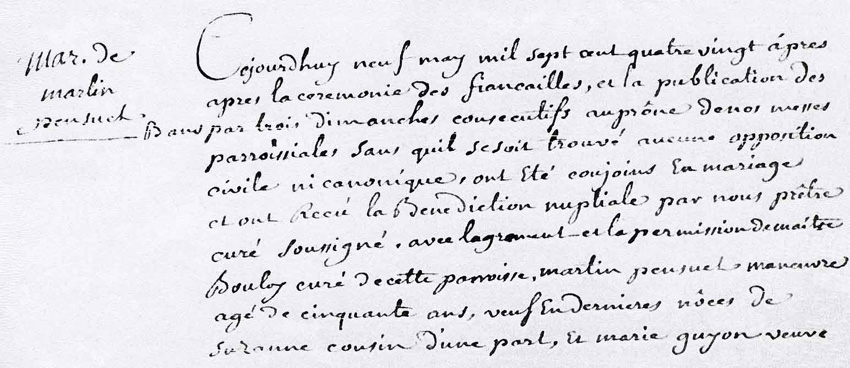 Mar. de
martin
pensuet
Cejourdhuy neuf may mil sept cent quatre vingt ápres
apres la ceremonie des fiancailles, et la publication des
Bans par trois dimanches consecutifs au prône de nos messes
parroissiales sans quil se soit trouvé aucune opposition
civile ni canonique, ont Eté conjoins En mariage
et ont Reçu la Benediction nuptiale par nous prêtre
curé soussigné. avec lagrement et la permission de maitre
Bouloy curé de cette parroisse, martin pensuet manœuvre
agé de cinquante ans, veuf En dernieres nôces de
suzanne cousin d'une part, Et marie guyon veuve